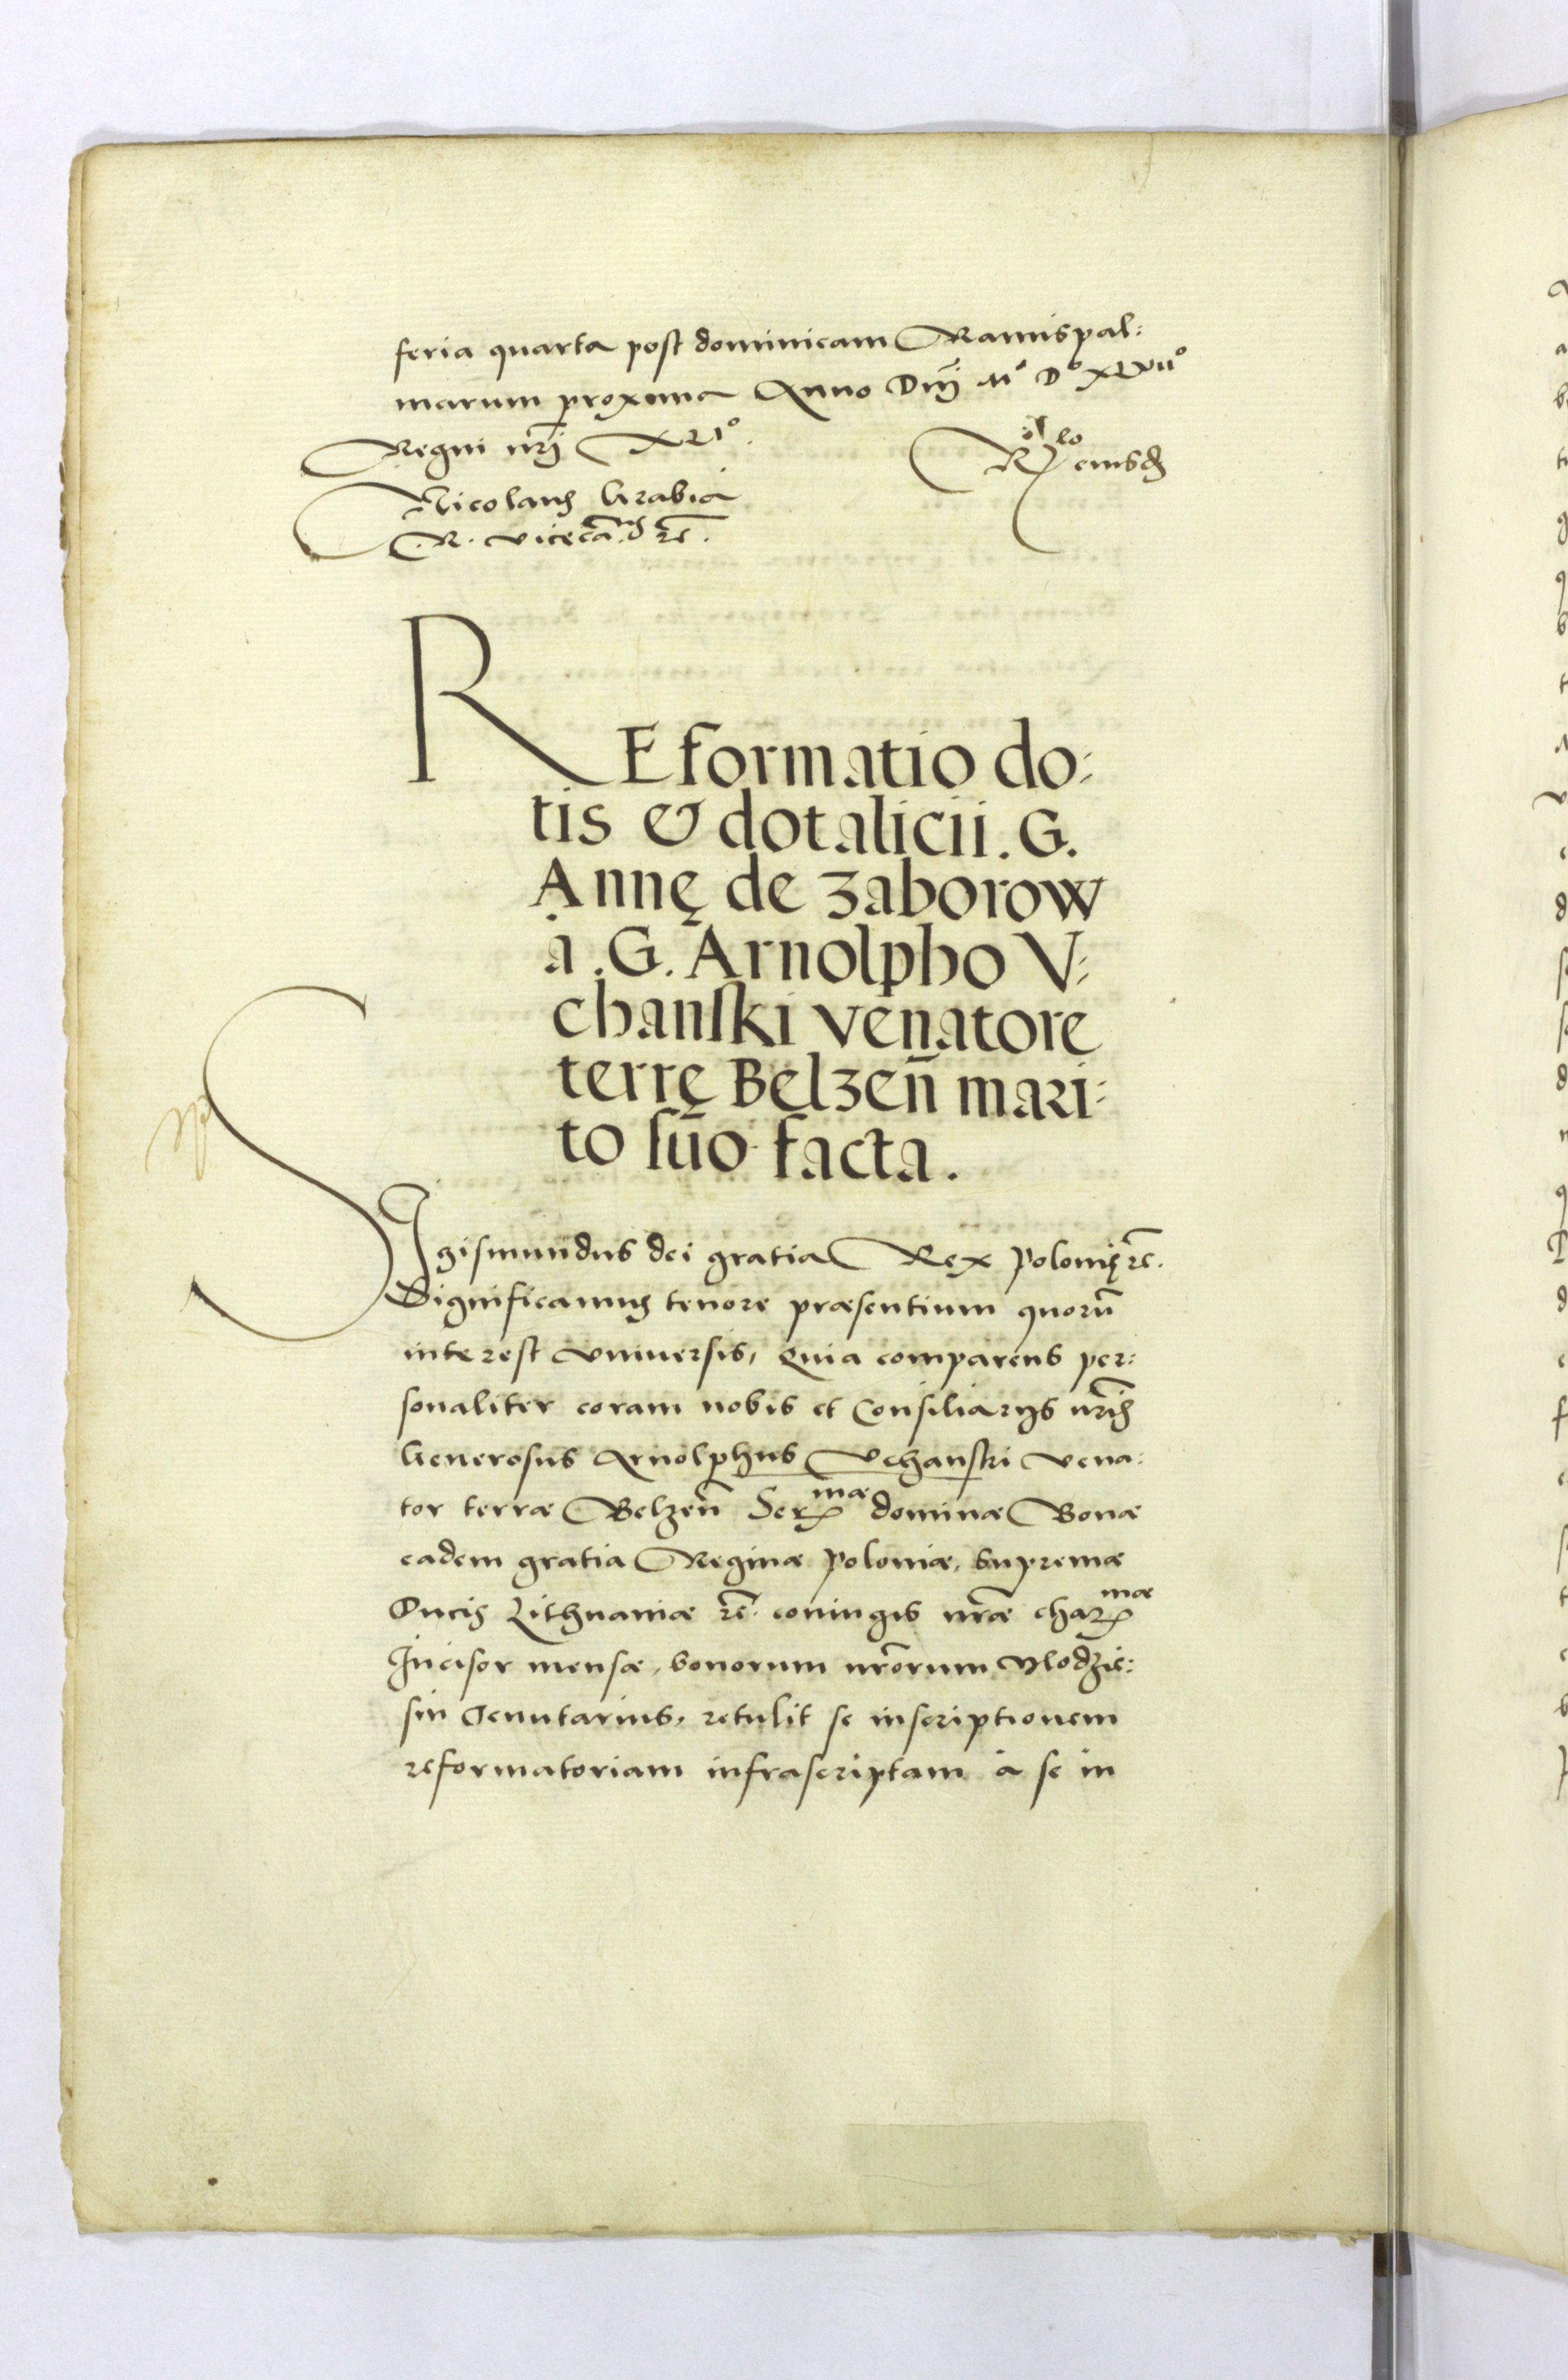 feria quarta post dominicam Ramispal:
marum proxima Anno Dnĩ Mº Dº XLVIIº
Regni nrĩ XLIº.
Rº lo eiusdē
Nicolaus Grabia
R. vicecã. rc̃.
REformatio do:
tis & dotalicii. G.
Annę de Zaborow
à. G. Arnolpho V:
chanſki venatore
terrę Belzen̄ mari:
to ſuo facta.
SIgismundus dei gratia Rex Polonię rc̃.
Significamus tenore præsentium quorū
interest vniuersis, Quia comparens per:
sonaliter coram nobis et Consiliarijs nrĩs
Generosus Arnolphus Vchanski vena:
tor terræ Belzen̄ Ser mæ dominæ Bonæ
eadem gratia Reginæ Poloniæ, Supremæ
Ducis Lithuaniæ rc̃. coniugis nræ̃ char mæ
Incisor mensæ, bonorum nrõrum Vlodzie:
sin Tenutarius, retulit se inscriptionem
reformatoriam infrascriptam à se in